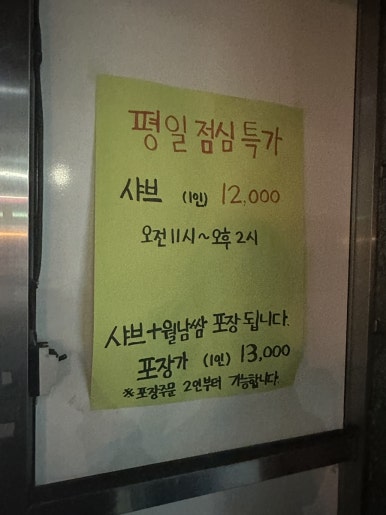 평일 점심 특가
샤브 (1인) 12,000
오전 11시~오후 2시
샤브+월남쌈 포장 됩니다.
포장가 (1인) 13,000
※포장주문 2인부터 가능합니다.